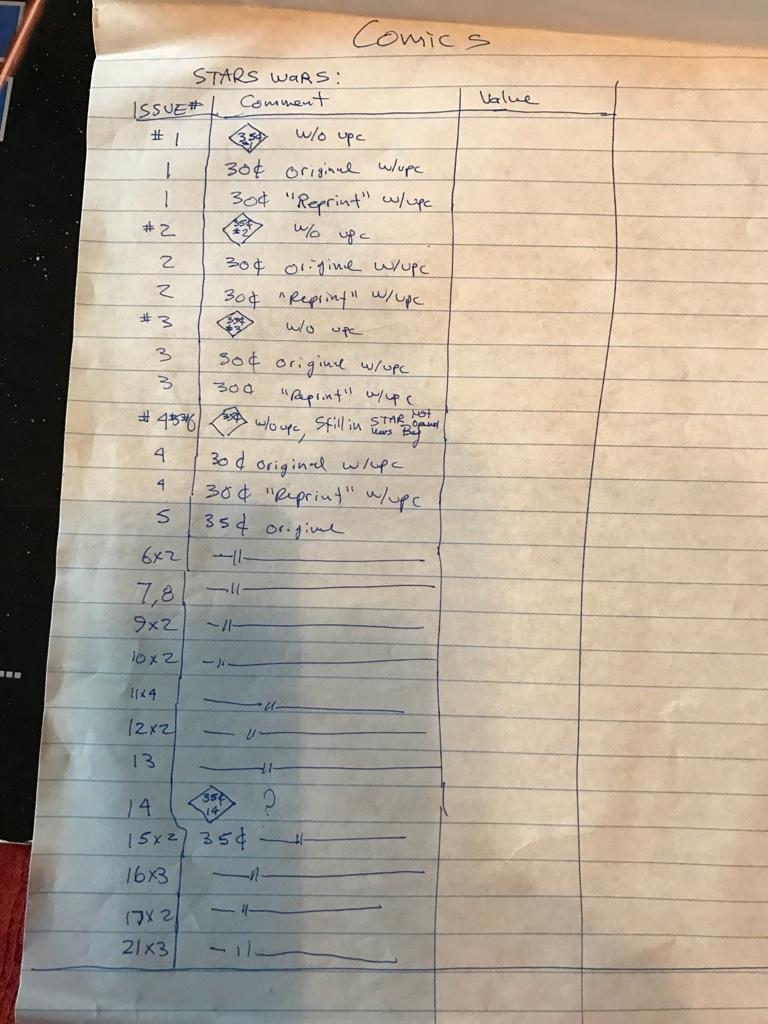 Comics
STARS WARS:
ISSUE# Comment Value
#1 35¢ w/o upc
1 30¢ original w/upc
1 30¢ "Reprint" w/upc
#2 35¢ #2 w/o upc
2 30¢ original w/upc
2 30¢ "Reprint" w/upc
#3 35¢ #3 w/o upc
3 30¢ original w/upc
3 30¢ "Reprint" w/upc
#4 #5 #6 35¢ w/o upc, Still in STAR Wars Bag NOT Opened
4 30¢ original w/upc
4 30¢ "Reprint" w/upc
5 35¢ original
6x2 —"—
7,8 —"—
9x2 —"—
10x2 —"—
11x4 —"—
12x2 —"—
13 —"—
14 35¢ 14 ?
15x2 35¢ —"—
16x3 —"—
17x2 —"—
21x3 —"—